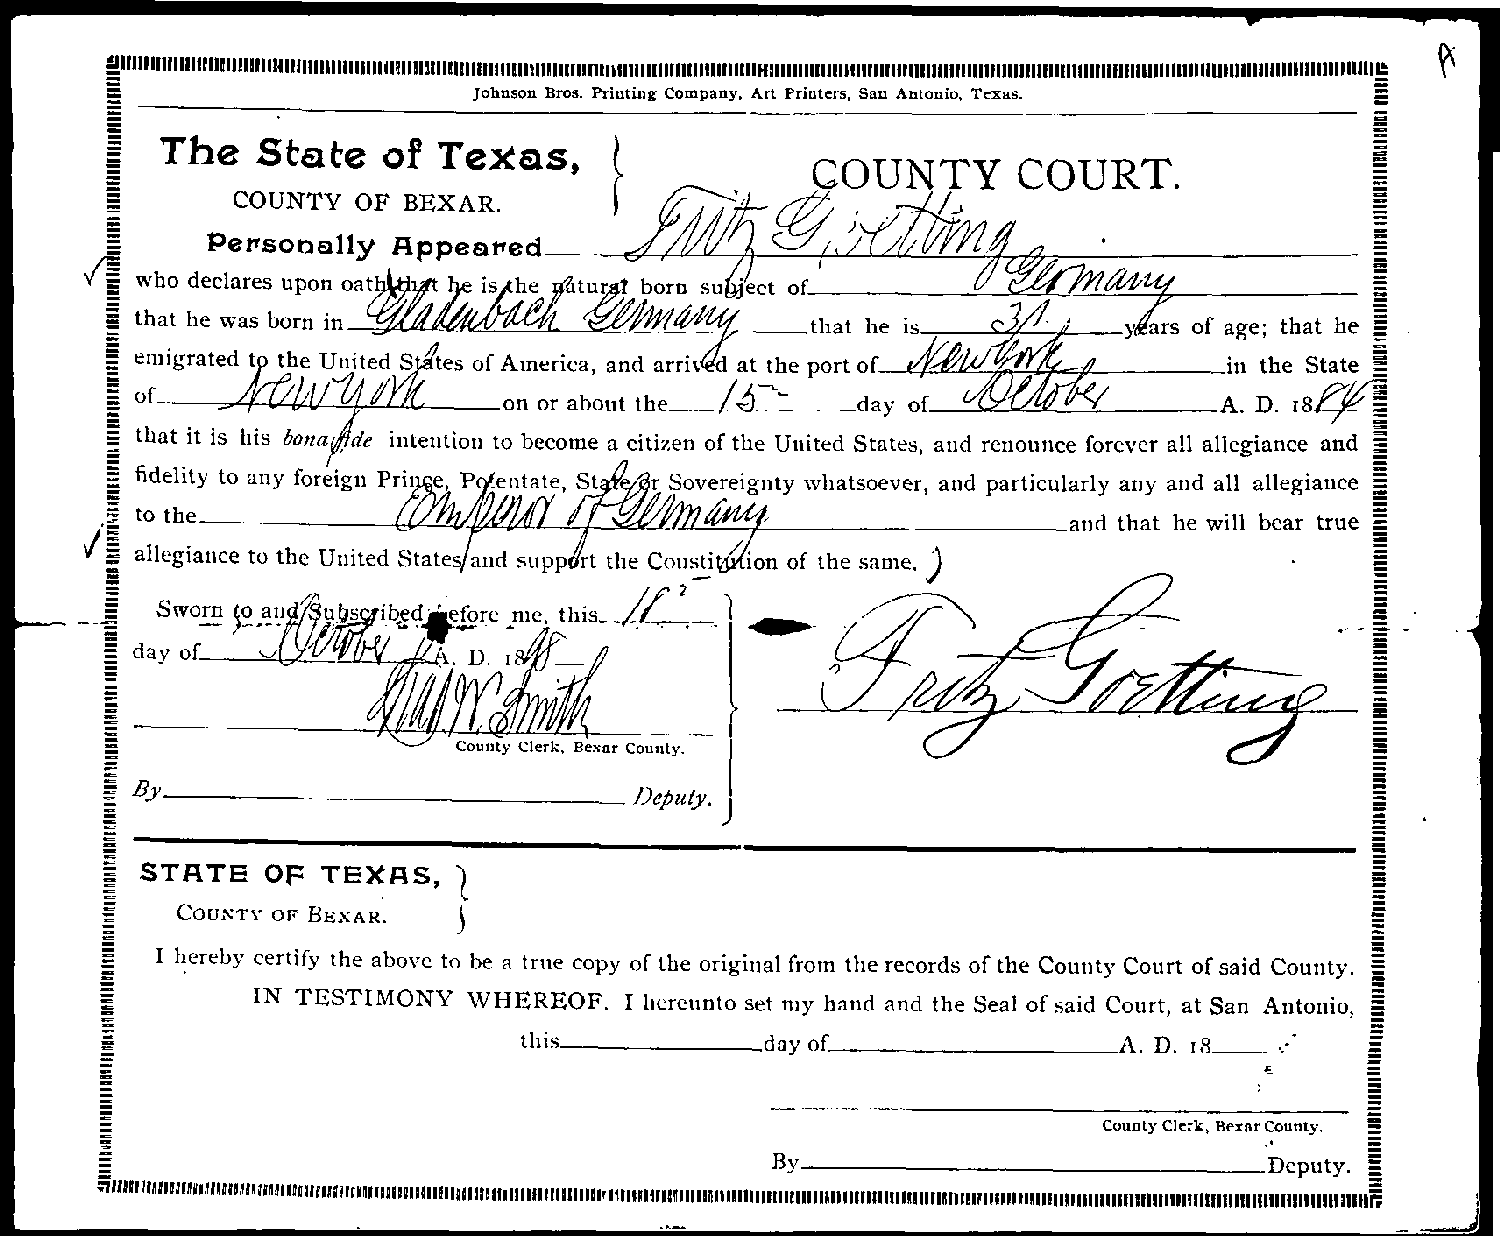 A
Johnson Bros. Printing Company, Art Printers, San Antonio, Texas.
The State of Texas, } COUNTY COURT.
COUNTY OF BEXAR.
Personally Appeared Fritz Goetting
who declares upon oath that he is the natural born subject of Germany
that he was born in Gladenbach Germany that he is 31 years of age; that he
emigrated to the United States of America, and arrived at the port of New York in the State
of New York on or about the 15 day of October A. D. 1884
that it is his bona fide intention to become a citizen of the United States, and renounce forever all allegiance and
fidelity to any foreign Prince, Potentate, State or Sovereignty whatsoever, and particularly any and all allegiance
to the Emperor of Germany and that he will bear true
allegiance to the United States and support the Constitution of the same.
Sworn to and Subscribed before me, this 18
day of October A. D. 1898
Fritz Goetting
Thad. W. Smith
County Clerk, Bexar County.
By Deputy.
STATE OF TEXAS, }
COUNTY OF BEXAR.
I hereby certify the above to be a true copy of the original from the records of the County Court of said County.
IN TESTIMONY WHEREOF. I hereunto set my hand and the Seal of said Court, at San Antonio,
this day of A. D. 18
County Clerk, Bexar County.
By Deputy.